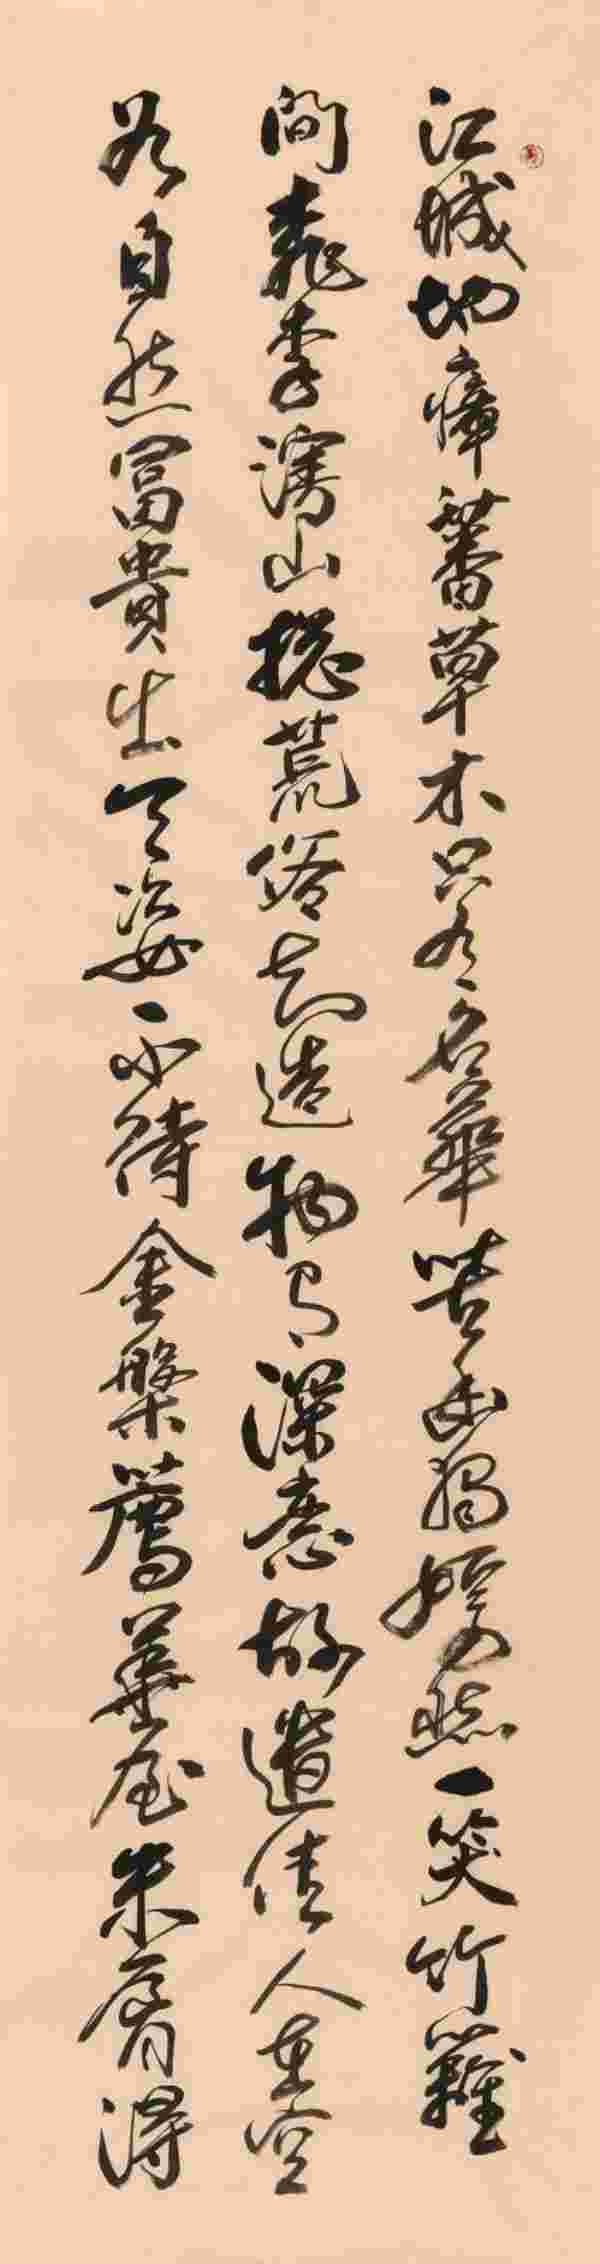 江城地瘴蕃草木只有名華苦幽獨嫣然一笑竹籬
間桃李漫山總荒俗知造物有深意故遣佳人在空
谷自然富貴出天姿不待金盤薦華屋朱脣得